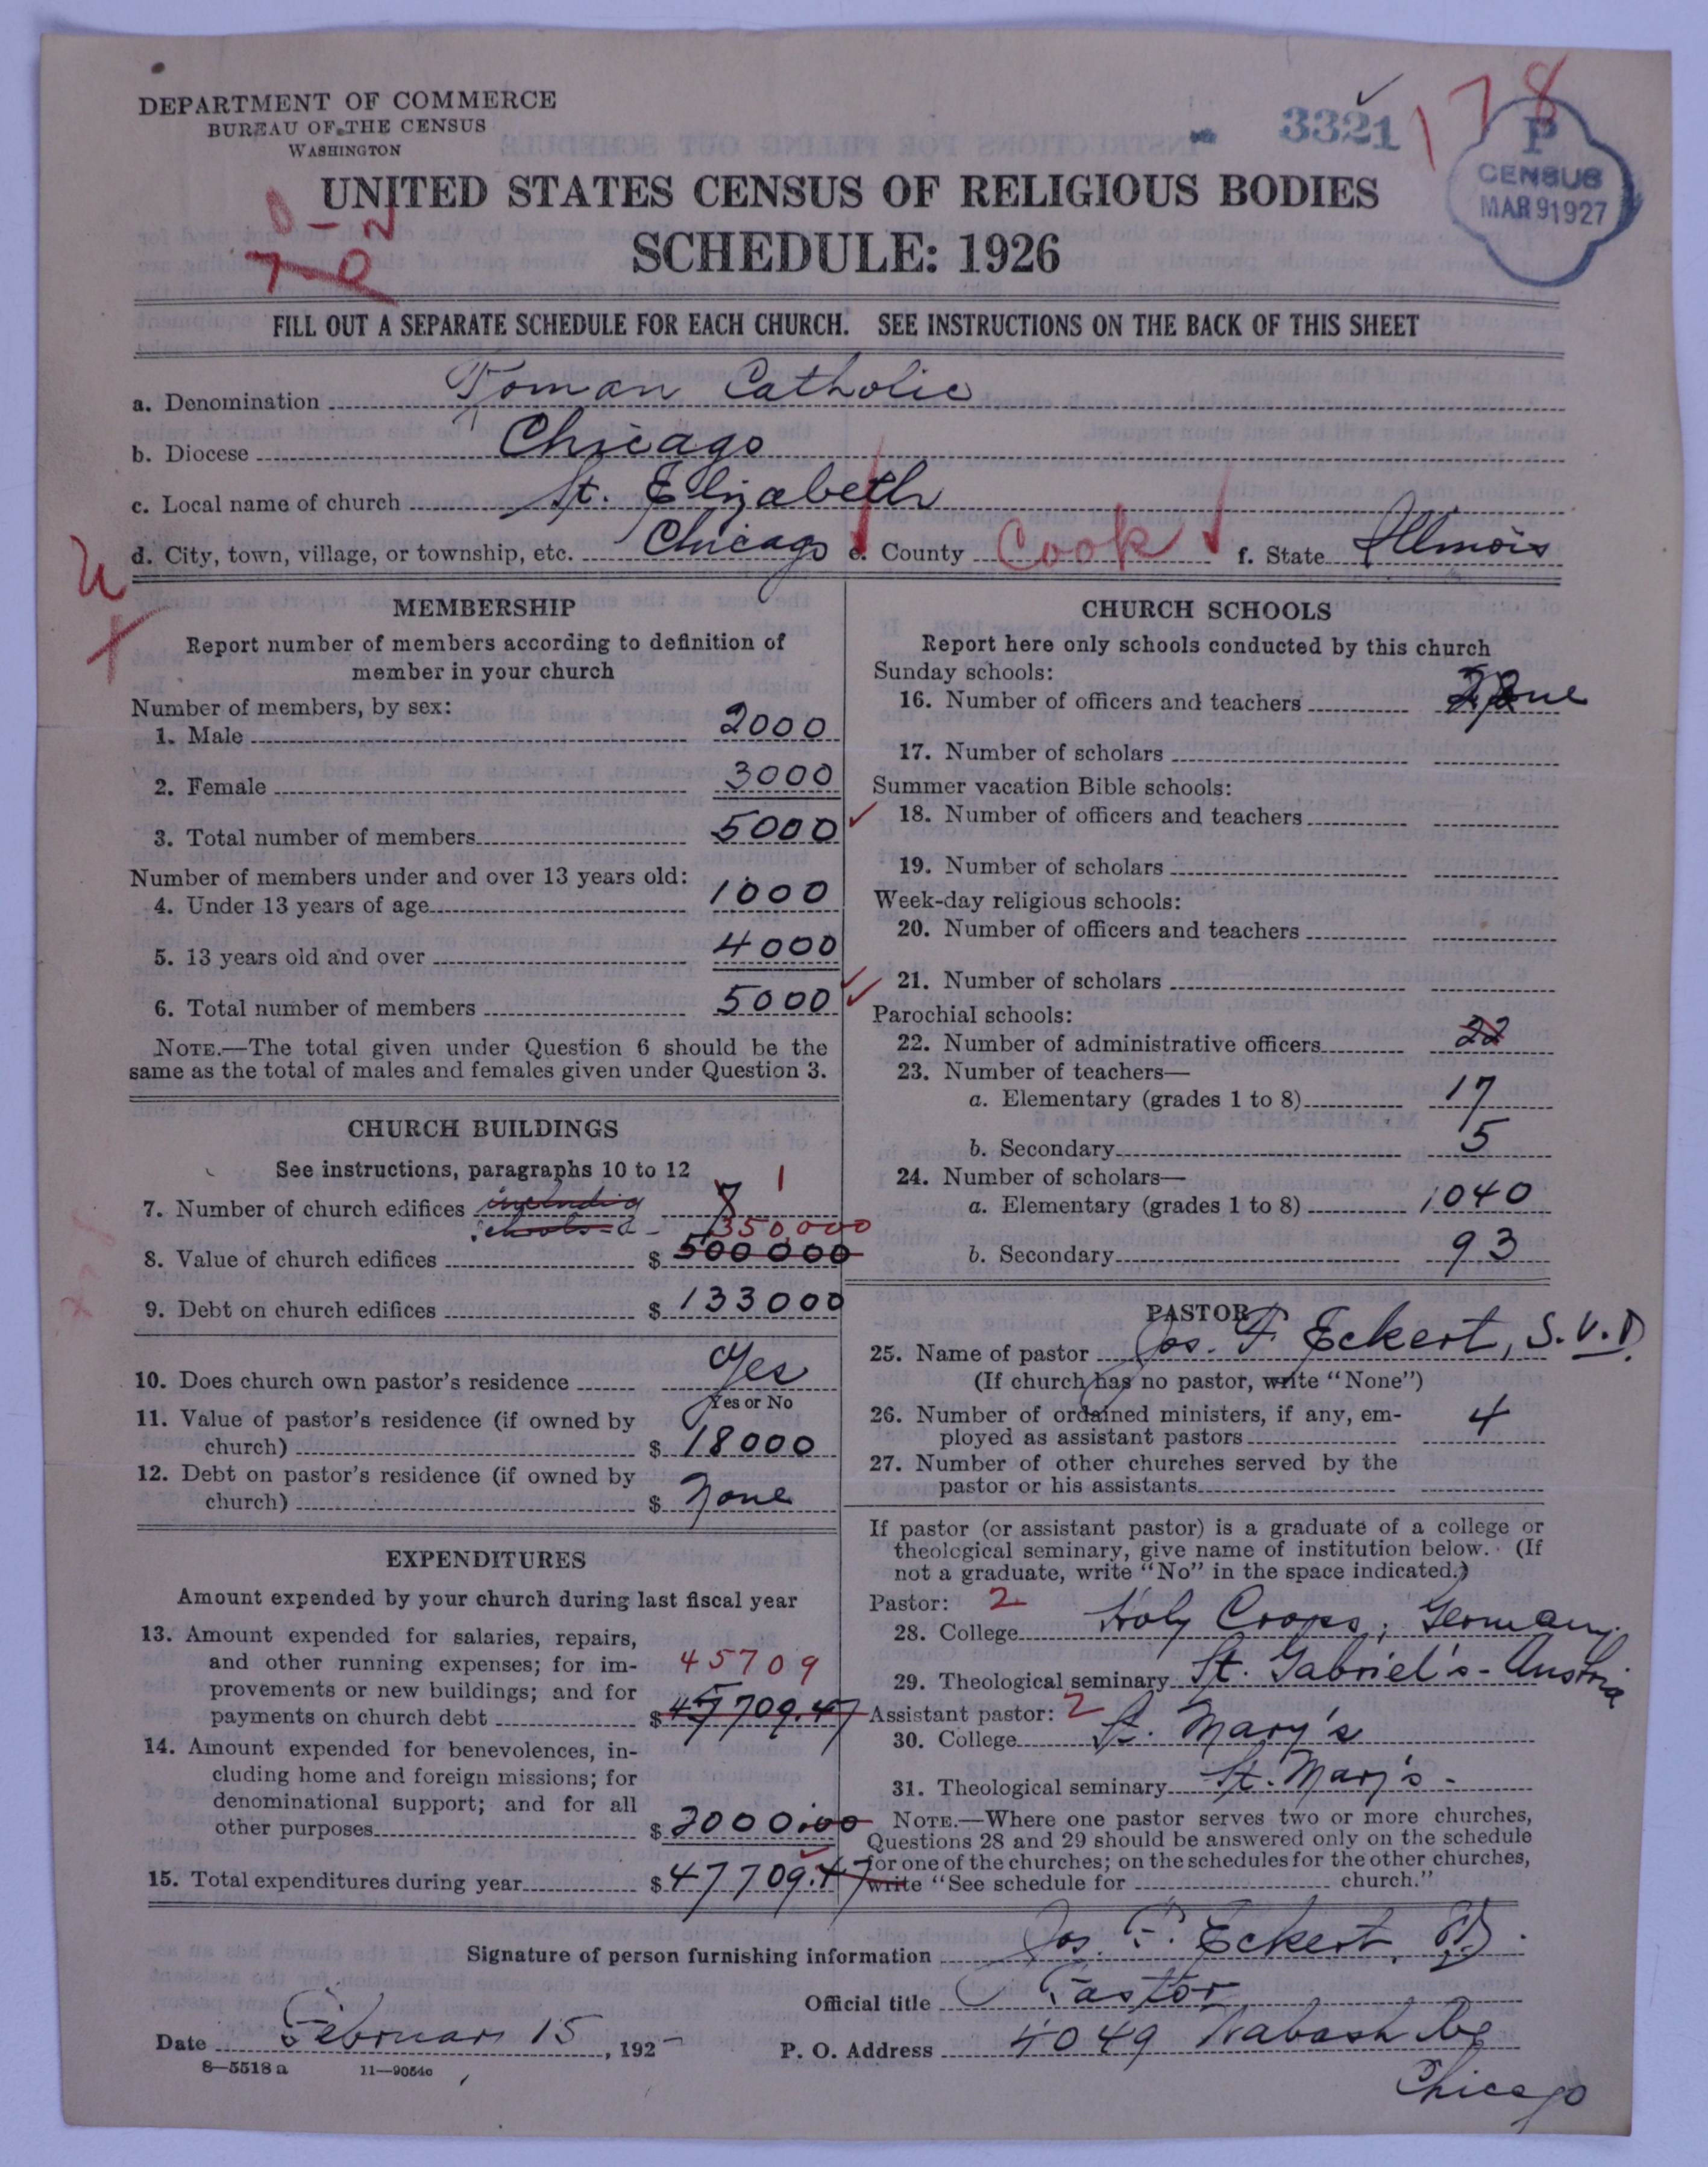 DEPARTMENT OF COMMERCE
BUREAU OF THE CENSUS
WASHINGTON
3321
178
P
CENSUS
MAR 9 1927
UNITED STATES CENSUS OF RELIGIOUS BODIES
SCHEDULE: 1926
FILL OUT A SEPARATE SCHEDULE FOR EACH CHURCH. SEE INSTRUCTIONS ON THE BACK OF THIS SHEET
a. Denomination Roman Catholic
b. Diocese Chicago
c. Local name of church St. Elizabeth
d. City, town, village, or township, etc. Chicago e. County Cook f. State Illinois
MEMBERSHIP
Report number of members according to definition of
member in your church
Number of members, by sex:
1. Male 2000
2. Female 3000
3. Total number of members 5000
Number of members under and over 13 years old:
4. Under 13 years of age 1000
5. 13 years old and over 4000
6. Total number of members 5000
NOTE.—The total given under Question 6 should be the
same as the total of males and females given under Question 3.
CHURCH BUILDINGS
See instructions, paragraphs 10 to 12
7. Number of church edifices including schools 1
350,000
8. Value of church edifices $ 500000
9. Debt on church edifices $ 133000
10. Does church own pastor's residence Yes
Yes or No
11. Value of pastor's residence (if owned by
church) $ 18000
12. Debt on pastor's residence (if owned by
church) $ None
EXPENDITURES
Amount expended by your church during last fiscal year
13. Amount expended for salaries, repairs,
and other running expenses; for im- 45709
provements or new buildings; and for
payments on church debt $ 45709.47
14. Amount expended for benevolences, in-
cluding home and foreign missions; for
denominational support; and for all
other purposes $ 2000.00
15. Total expenditures during year $ 47709.47
CHURCH SCHOOLS
Report here only schools conducted by this church
Sunday schools:
16. Number of officers and teachers
17. Number of scholars
Summer vacation Bible schools:
18. Number of officers and teachers
19. Number of scholars
Week-day religious schools:
20. Number of officers and teachers
21. Number of scholars
Parochial schools:
22. Number of administrative officers 22
23. Number of teachers—
a. Elementary (grades 1 to 8) 17
b. Secondary 5
24. Number of scholars—
a. Elementary (grades 1 to 8) 1040
b. Secondary 93
PASTOR
25. Name of pastor Jos. F. Eckert, S.V.D.
(If church has no pastor, write "None")
26. Number of ordained ministers, if any, em-
ployed as assistant pastors 4
27. Number of other churches served by the
pastor or his assistants
If pastor (or assistant pastor) is a graduate of a college or
theological seminary, give name of institution below. (If
not a graduate, write "No" in the space indicated.)
Pastor: 2
28. College Holy Cross, Germany
29. Theological seminary St. Gabriel's - Austria
Assistant pastor: 2
30. College St. Mary's
31. Theological seminary St. Mary's -
NOTE.—Where one pastor serves two or more churches,
Questions 28 and 29 should be answered only on the schedule
for one of the churches; on the schedules for the other churches,
write "See schedule for church."
Signature of person furnishing information Jos. F. Eckert
Official title Pastor
Date Februar 15, 192
P. O. Address 4049 Wabash
Chicago
8—5518 a 11—9054c